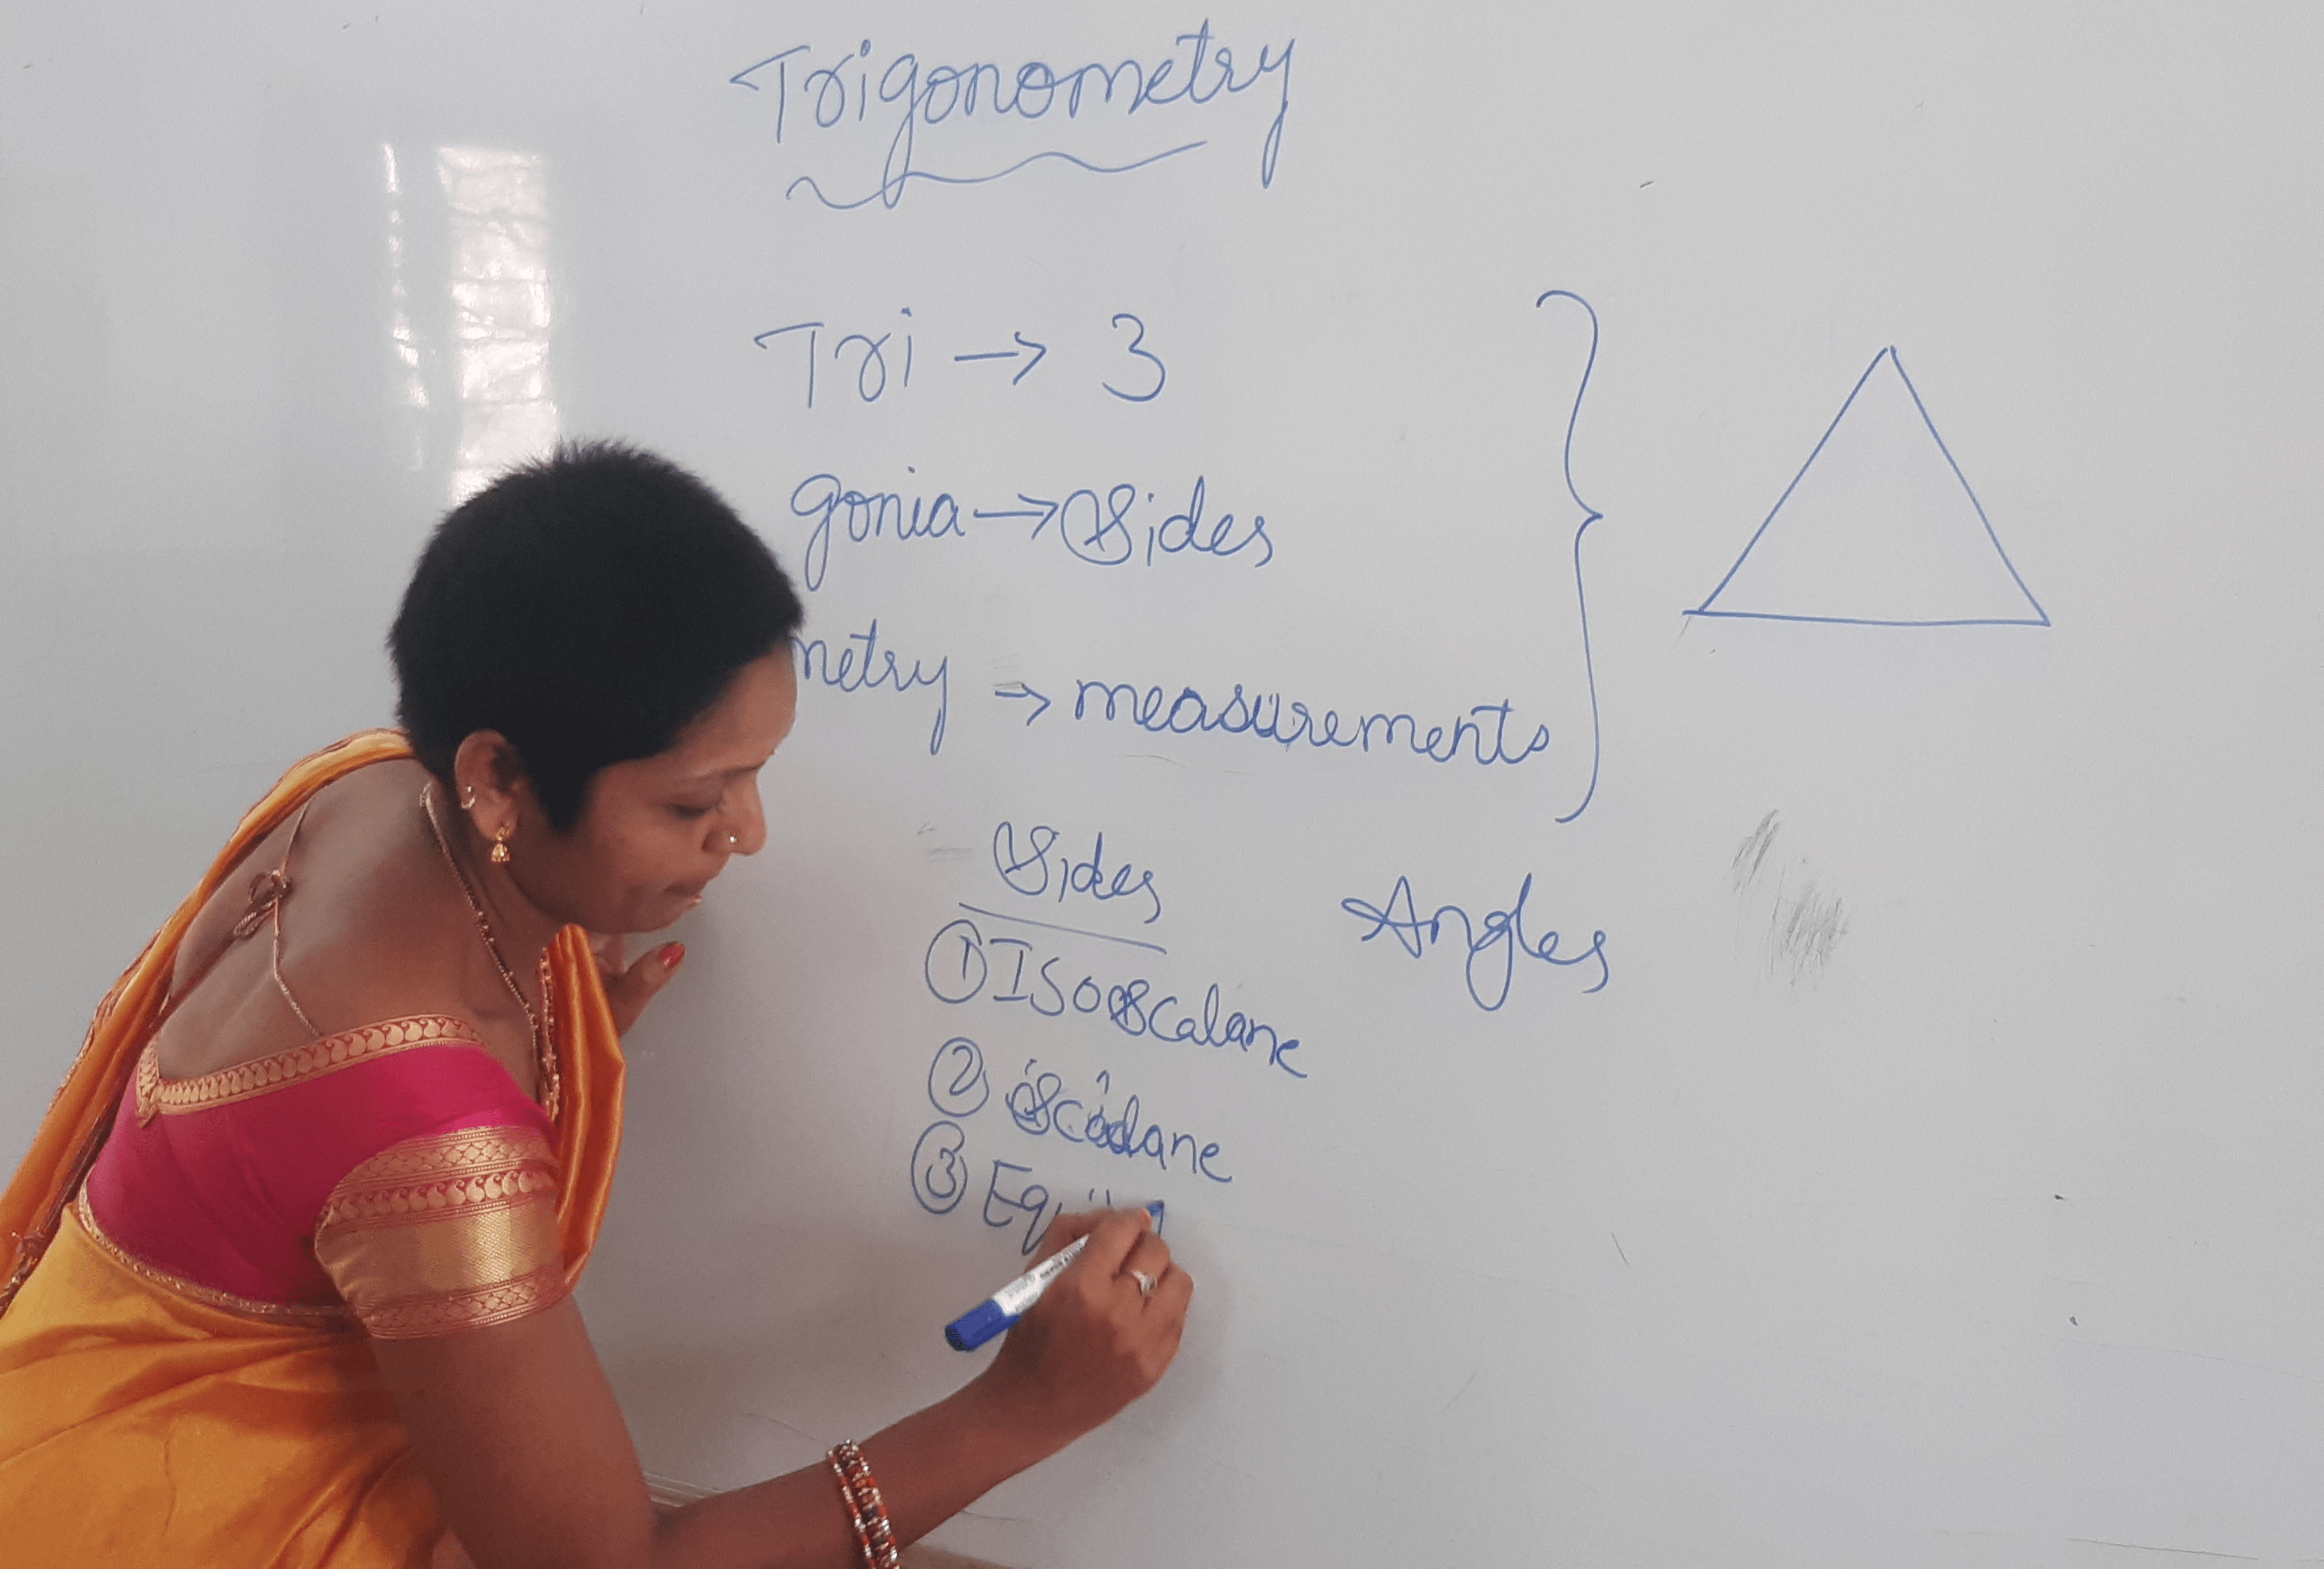 Trigonometry
Tri → 3
gonia → Sides
metry → measurements
Sides Angles
① Isoscalane
② Scalane
③ Equil